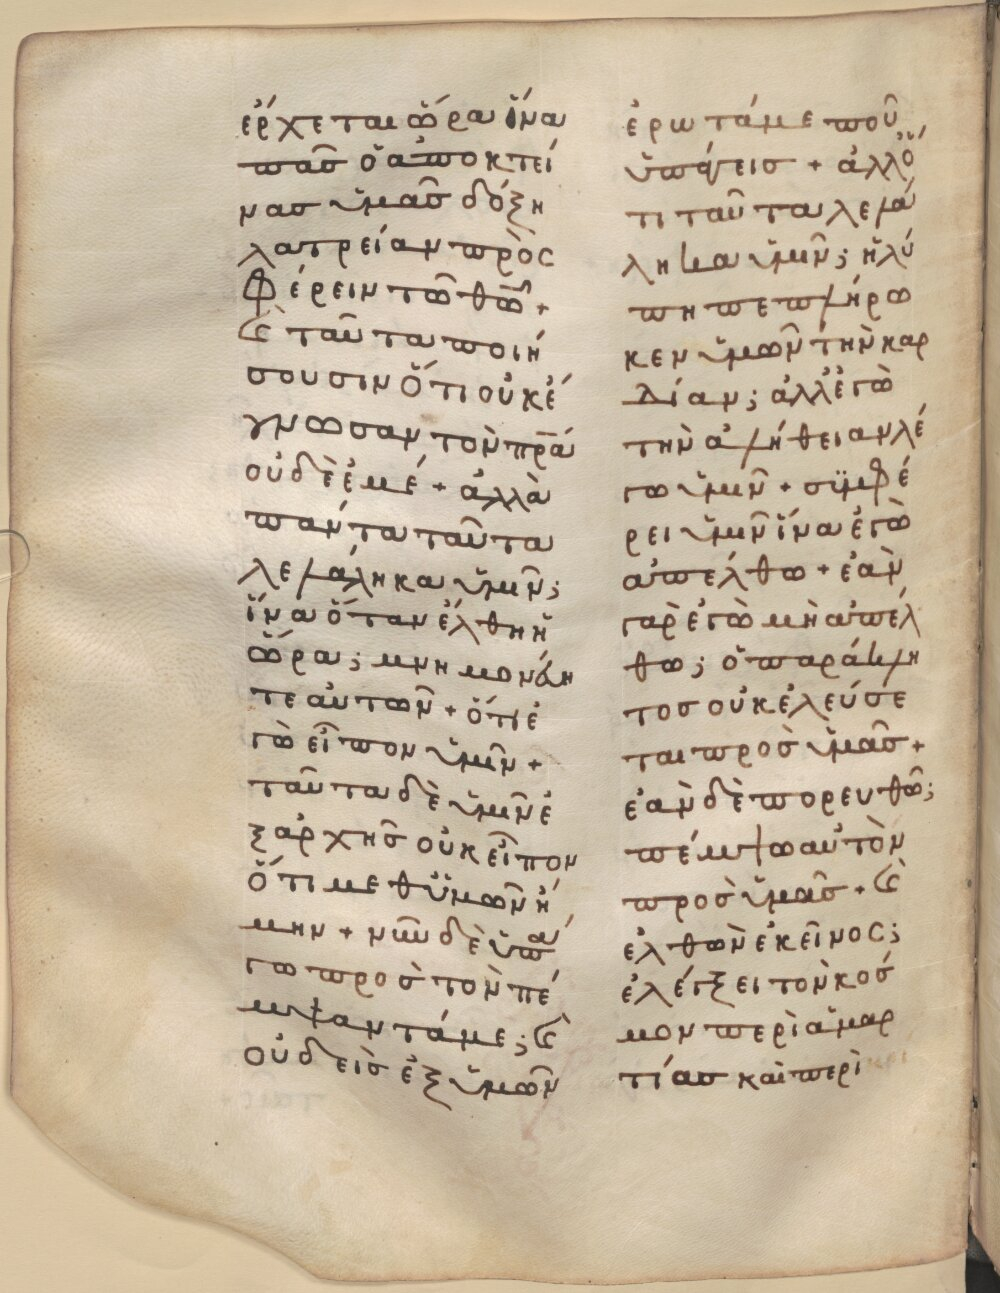 ἔρχεται ὥρα ἵνα
πᾶσ ὁ ἀποκτεί
νασ ὑμᾶσ δόξη
λατρείαν πρὸς
φέρειν τῶ θῶ +
καὶ ταῦτα ποιή
σουσιν ὅτι οὐκ έ
γνωσαν τὸν πρᾱ́
οὐδὲ ἐμέ + ἀλλὰ
πάντα ταῦτα
λελάληκα ὑμῖν;
ἵνα ὅταν ἔλθη ἡ
ὥρα; μνημονέυη
τε ἀυτῶν + ὅτι ἐ
γὼ εἶπον ὑμῖν +
ταῦτα δὲ ὑμῖν ἐ
ξ ἀρχῆσ οὐκ εἶπον
ὅτι μεθ ὑμῶν ἤ
μην + νῦν δὲ ὑπά
γω πρὸσ τὸν πέ
μψαντά με; καὶ
οὐδεὶσ ἐξ ὑμῶν
ἐρωτά με ποῦ
ὑπάγεισ + ἀλλ ὅ
τι ταῦτα λελά
ληκα ὑμῖν; ἡ λύ
πη πεπλήρω
κεν ὑμῶν τὴν καρ
δίαν; ἀλλ ἐγὼ
τὴν ἀλήθειαν λέ
γω ὑμῖν + συμφέ
ρει ὑμῖν ἵνα ἐγὼ
ἀπέλθω + ἐὰν
γὰρ ἐγὼ μὴ ἀπέλ
θω; ὁ παράκλη
τοσ οὐκ ἐλεύσε
ται πρὸσ ὑμᾶσ +
ἐὰν δὲ πορευθῶ;
πέμψω αὐτὸν
πρὸσ ὑμᾶσ + καὶ
ἐλθὼν ἐκεῖνος;
ἐλέγξει τὸν κόσ
μον περὶ ἁμαρ
τίασ καὶ περὶ